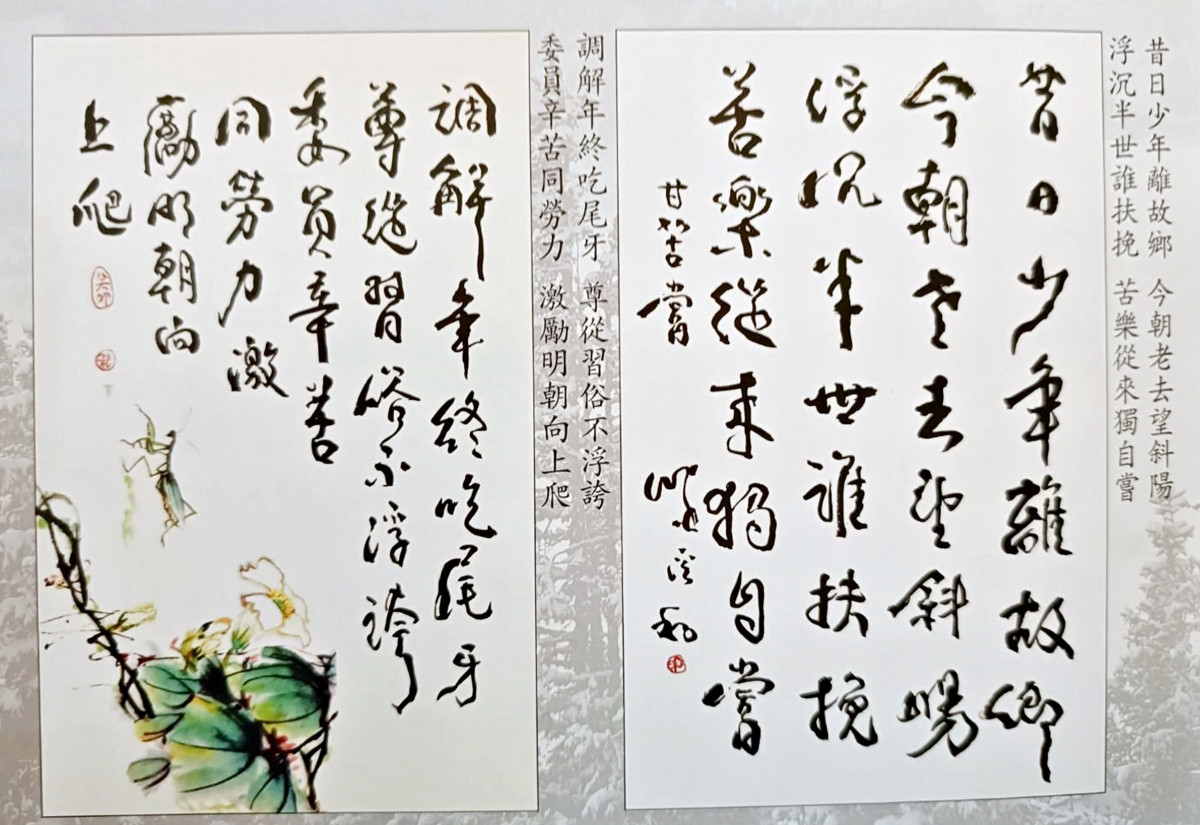 昔日少年離故鄉　今朝老去望斜陽
浮沉半世誰扶挽　苦樂從來獨自嘗
昔日少年離故鄉
今朝老去望斜陽
浮沉半世誰扶挽
苦樂從來獨自嘗
甘苦嘗
調解年終吃尾牙　尊從習俗不浮誇
委員辛苦同勞力　激勵明朝向上爬
調解年終吃尾牙
尊從習俗不浮誇
委員辛苦
同勞力激
勵明朝向
上爬